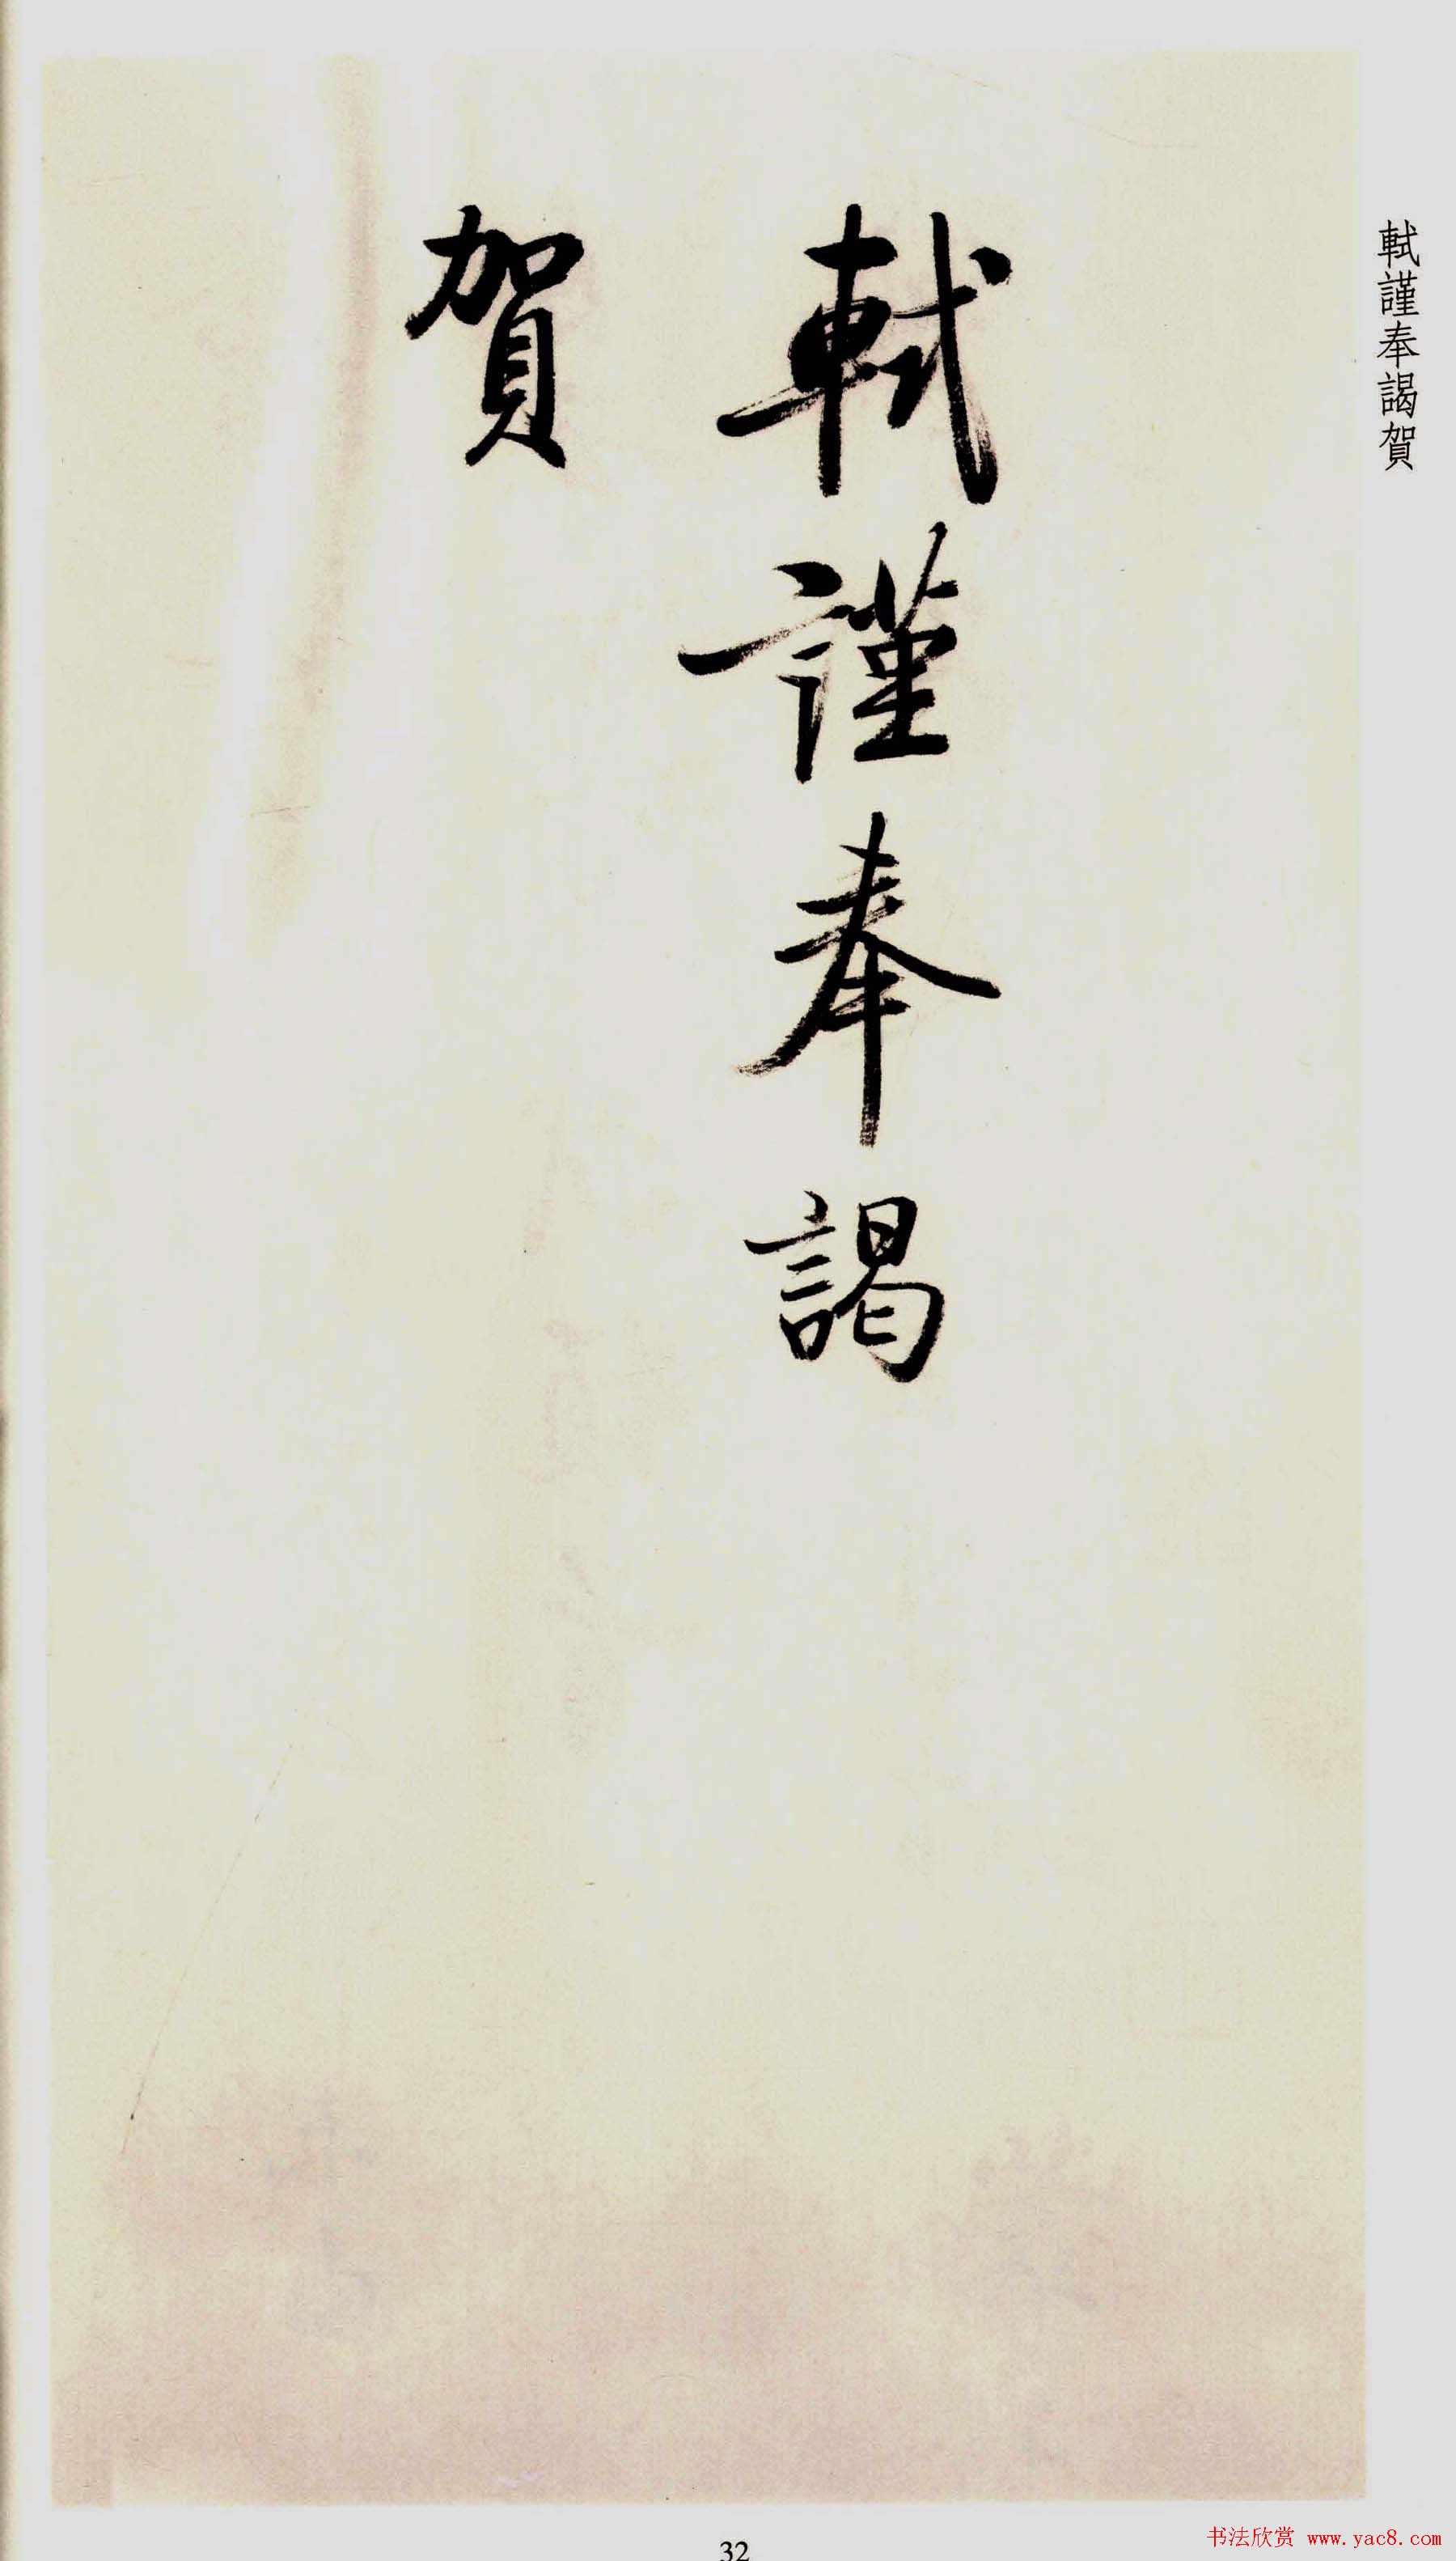 軾謹奉謁
賀
軾謹奉謁賀
32
书法欣赏 www.yac8.com